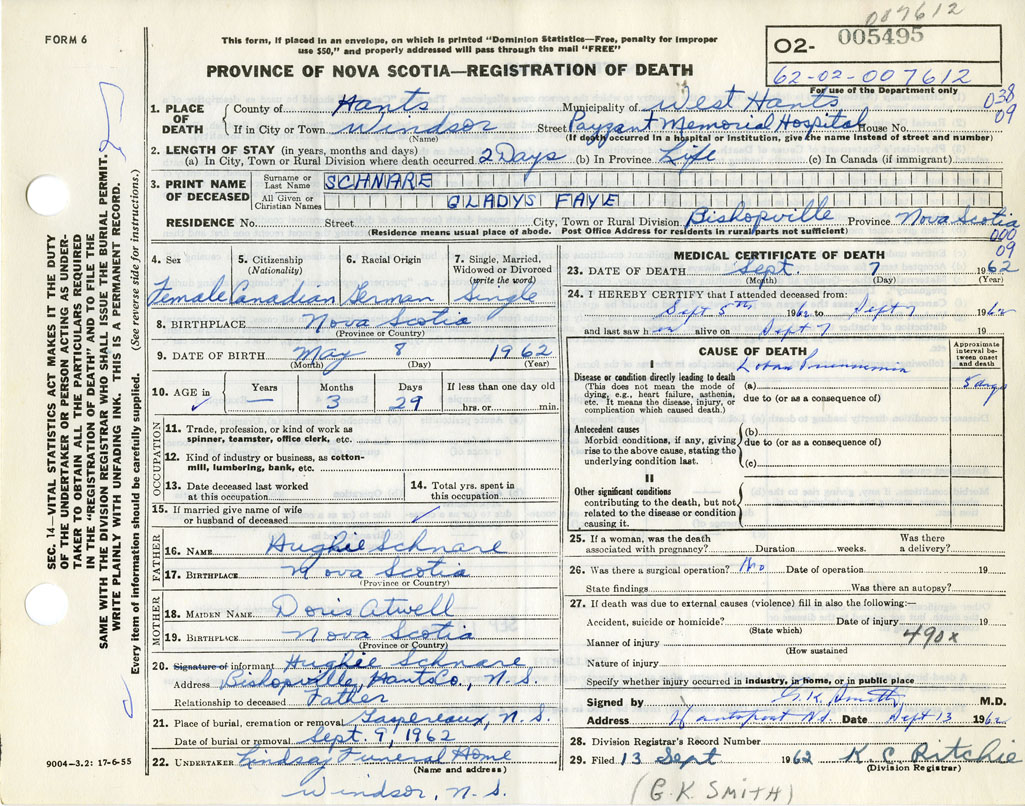 007612
FORM 6
This form, if placed in an envelope, on which is printed "Dominion Statistics—Free, penalty for improper
use $50," and properly addressed will pass through the mail "FREE"
02- 005495
PROVINCE OF NOVA SCOTIA—REGISTRATION OF DEATH
62-02-007612
For use of the Department only
038
09
1. PLACE OF DEATH County of Hants Municipality of West Hants
If in City or Town Windsor Street Payzant Memorial Hospital House No.
(Name) (If death occurred in a hospital or institution, give the name instead of street and number)
2. LENGTH OF STAY (in years, months and days)
(a) In City, Town or Rural Division where death occurred 2 Days (b) In Province Life (c) In Canada (if immigrant)
3. PRINT NAME OF DECEASED
Surname or Last Name SCHNARE
All Given or Christian Names GLADYS FAYE
RESIDENCE No. Street City, Town or Rural Division Bishopville Province Nova Scotia
(Residence means usual place of abode. Post Office Address for residents in rural parts not sufficient)
000
09
4. Sex 5. Citizenship (Nationality) 6. Racial Origin 7. Single, Married, Widowed or Divorced (write the word)
Female Canadian German Single
8. BIRTHPLACE Nova Scotia
(Province or Country)
9. DATE OF BIRTH May 8 1962
(Month) (Day) (Year)
10. AGE in Years Months Days If less than one day old
— 3 29 hrs. or min.
OCCUPATION
11. Trade, profession, or kind of work as
spinner, teamster, office clerk, etc.
12. Kind of industry or business, as cotton-
mill, lumbering, bank, etc.
13. Date deceased last worked at this occupation
14. Total yrs. spent in this occupation
15. If married give name of wife
or husband of deceased
FATHER
16. NAME Hughie Schnare
17. BIRTHPLACE Nova Scotia
(Province or Country)
MOTHER
18. MAIDEN NAME Doris Atwell
19. BIRTHPLACE Nova Scotia
(Province or Country)
20. Signature of informant Hughie Schnare
Address Bishopville, Hants Co., N. S.
Relationship to deceased Father
21. Place of burial, cremation or removal Gaspereaux, N. S.
Date of burial or removal Sept. 9, 1962
22. UNDERTAKER Lindsay Funeral Home
(Name and address)
Windsor, N. S.
MEDICAL CERTIFICATE OF DEATH
23. DATE OF DEATH Sept. 7 1962
(Month) (Day) (Year)
24. I HEREBY CERTIFY that I attended deceased from:
Sept 5th 1962 to Sept 7 1962
and last saw h alive on Sept 7 19
CAUSE OF DEATH
Approximate interval between onset and death
I
Disease or condition directly leading to death
(This does not mean the mode of
dying, e.g., heart failure, asthenia,
etc. It means the disease, injury, or
complication which caused death.)
(a) Lobar Pneumonia 5 days
due to (or as a consequence of)
Antecedent causes
Morbid conditions, if any, giving
rise to the above cause, stating the
underlying condition last.
(b)
due to (or as a consequence of)
(c)
II
Other significant conditions
contributing to the death, but not
related to the disease or condition
causing it.
25. If a woman, was the death associated with pregnancy? Duration weeks. Was there a delivery?
26. Was there a surgical operation? No Date of operation 19
State findings Was there an autopsy?
27. If death was due to external causes (violence) fill in also the following:—
Accident, suicide or homicide? Date of injury 19
(State which)
Manner of injury 490x
(How sustained
Nature of injury
Specify whether injury occurred in industry, in home, or in public place
Signed by G. K. Smith M.D.
Address Hantsport N.S. Date Sept 13 1962
28. Division Registrar's Record Number
29. Filed 13 Sept 1962 K. C. Ritchie
(Division Registrar)
(G. K. SMITH)
SEC. 14—VITAL STATISTICS ACT MAKES IT THE DUTY
OF THE UNDERTAKER OR PERSON ACTING AS UNDER-
TAKER TO OBTAIN ALL THE PARTICULARS REQUIRED
IN THE "REGISTRATION OF DEATH" AND TO FILE THE
SAME WITH THE DIVISION REGISTRAR WHO SHALL ISSUE THE BURIAL PERMIT.
WRITE PLAINLY WITH UNFADING INK. THIS IS A PERMANENT RECORD.
Every item of information should be carefully supplied. (See reverse side for instructions.)
9004—3.2: 17-6-55